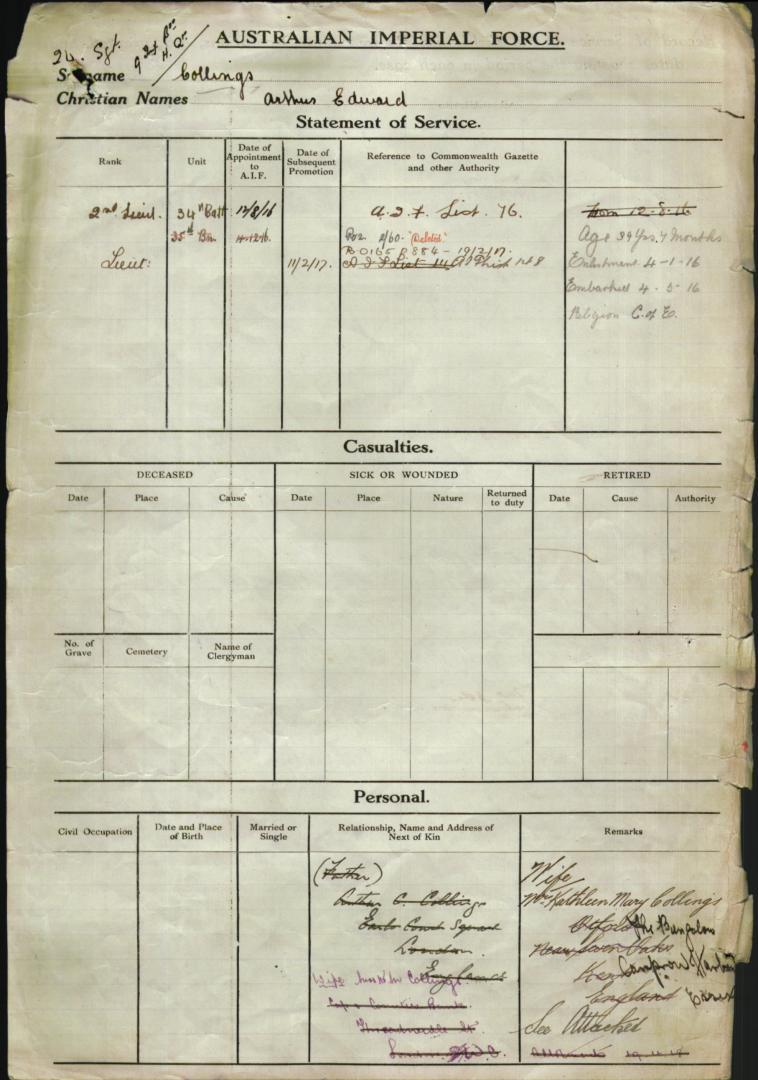 24. Sgt.
AUSTRALIAN IMPERIAL FORCE.
Surname Collings
Christian Names Arthur Edward
Statement of Service.
Rank
Unit
Date of Appointment to A.I.F.
Date of Subsequent Promotion
Reference to Commonwealth Gazette and other Authority
2nd Lieut. 34th Batt 12/8/16 A.I.F. List. 76. From 12-8-16
35th Bn. "Deleted" Age 39 Yrs. 7 Months
R.O 165 P 884 - 19/2/17.
Lieut: 11/2/17. A I F List Enlistment 4-1-16
Embarked 4. 5. 16
Religion C. of E.
Casualties.
DECEASED
SICK OR WOUNDED
RETIRED
Date
Place
Cause
Date
Place
Nature
Returned to duty
Date
Cause
Authority
No. of Grave
Cemetery
Name of Clergyman
Personal.
Civil Occupation
Date and Place of Birth
Married or Single
Relationship, Name and Address of Next of Kin
Remarks
(Father) Wife
Arthur C. Collings Mrs Kathleen Mary Collings
Earls Court Square Otford The Bungalow
London. Near Seven Oaks
England Kent
Wife Collings. England
Cap & Counties Bank. Essex
Threadneedle St. See Attached
London